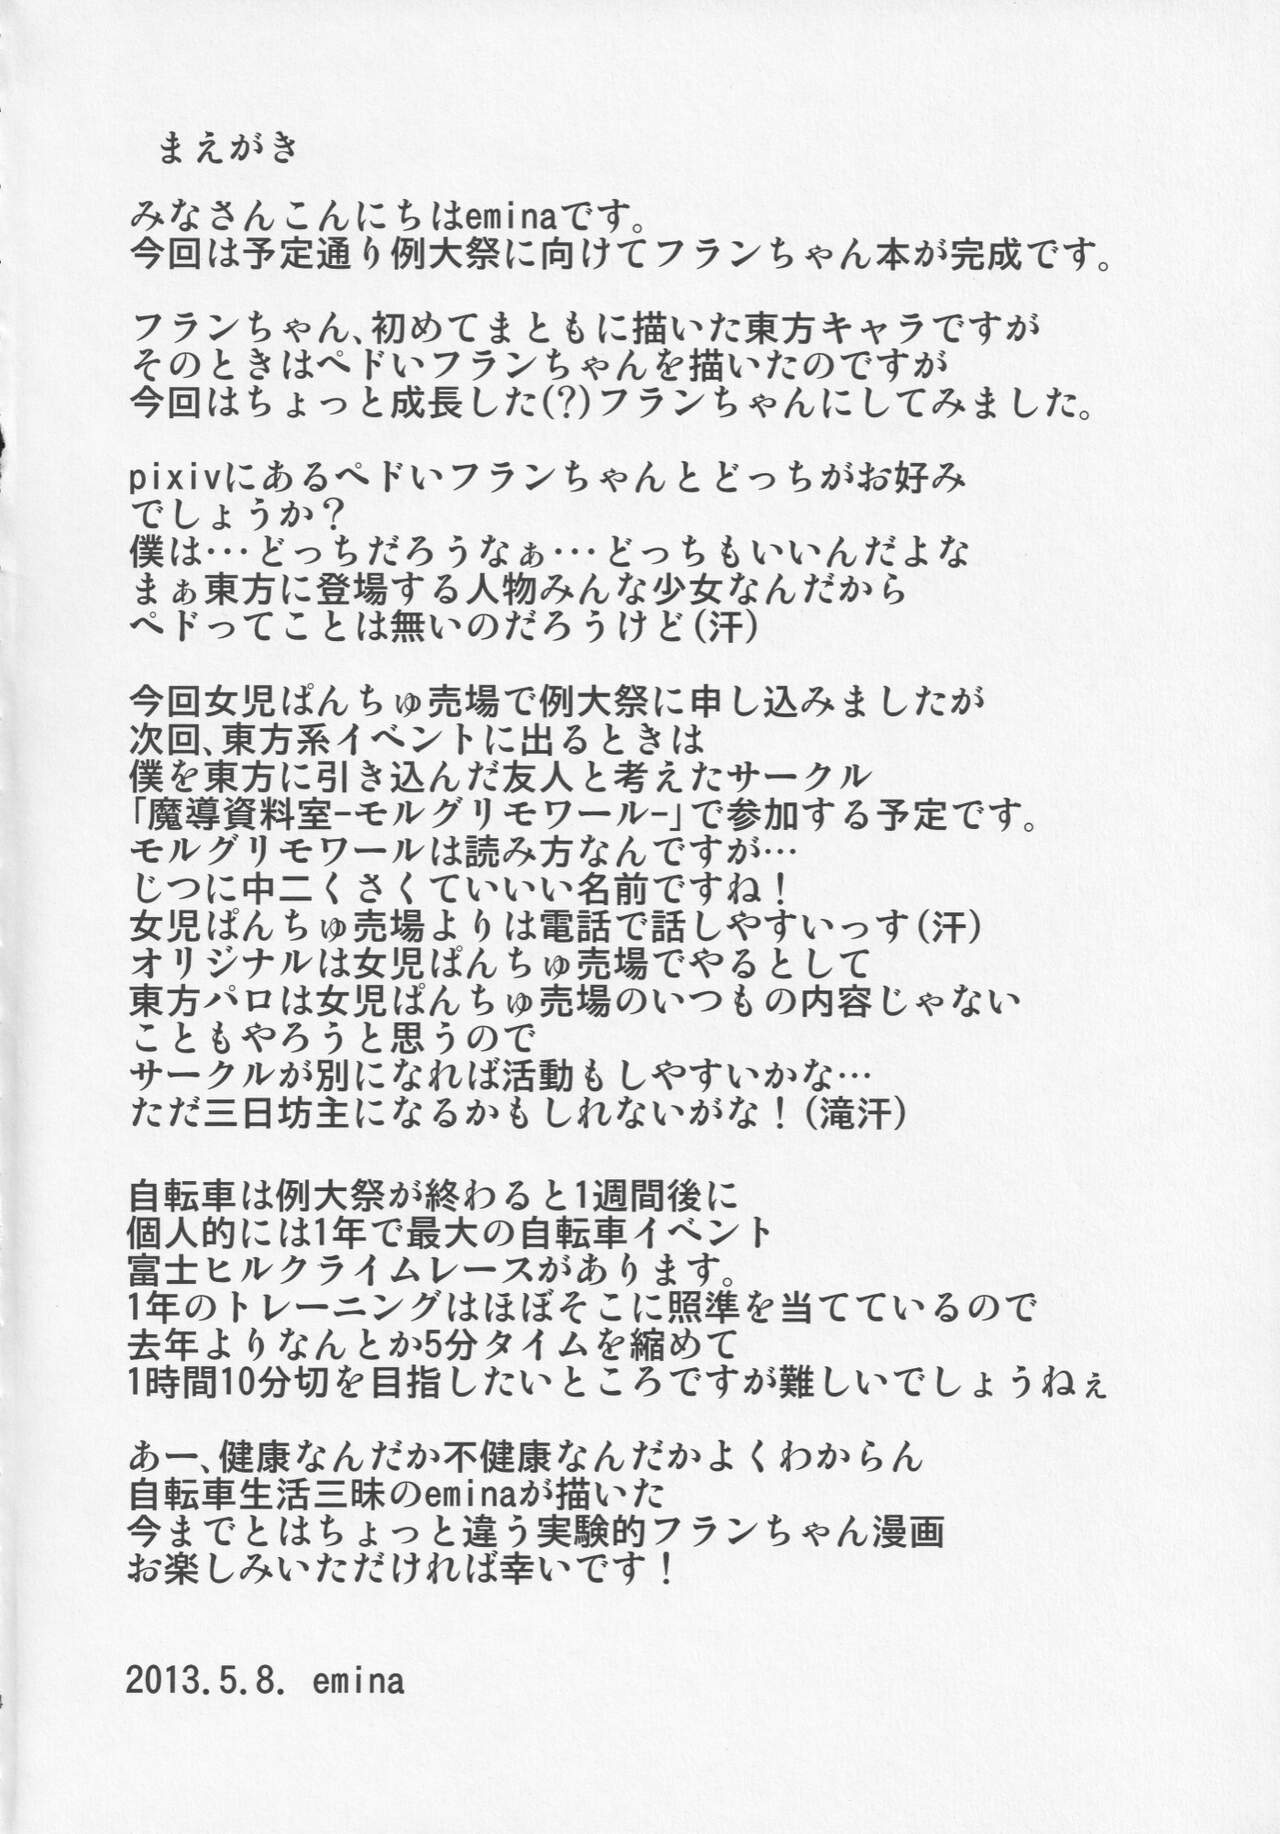 まえがき
みなさんこんにちはeminaです。
今回は予定通り例大祭に向けてフランちゃん本が完成です。
フランちゃん、初めてまともに描いた東方キャラですが
そのときはペドいフランちゃんを描いたのですが
今回はちょっと成長した(?)フランちゃんにしてみました。
pixivにあるペドいフランちゃんとどっちがお好み
でしょうか?
僕は…どっちだろうなぁ…どっちもいいんだよな
まぁ東方に登場する人物みんな少女なんだから
ペドってことは無いのだろうけど(汗)
今回女児ぱんちゅ売場で例大祭に申し込みましたが
次回、東方系イベントに出るときは
僕を東方に引き込んだ友人と考えたサークル
「魔導資料室-モルグリモワール-」で参加する予定です。
モルグリモワールは読み方なんですが…
じつに中二くさくていいい名前ですね!
女児ぱんちゅ売場よりは電話で話しやすいっす(汗)
オリジナルは女児ぱんちゅ売場でやるとして
東方パロは女児ぱんちゅ売場のいつもの内容じゃない
こともやろうと思うので
サークルが別になれば活動もしやすいかな…
ただ三日坊主になるかもしれないがな!(滝汗)
自転車は例大祭が終わると1週間後に
個人的には1年で最大の自転車イベント
富士ヒルクライムレースがあります。
1年のトレーニングはほぼそこに照準を当てているので
去年よりなんとか5分タイムを縮めて
1時間10分切を目指したいところですが難しいでしょうねぇ
あー、健康なんだか不健康なんだかよくわからん
自転車生活三昧のeminaが描いた
今までとはちょっと違う実験的フランちゃん漫画
お楽しみいただければ幸いです!
2013.5.8. emina